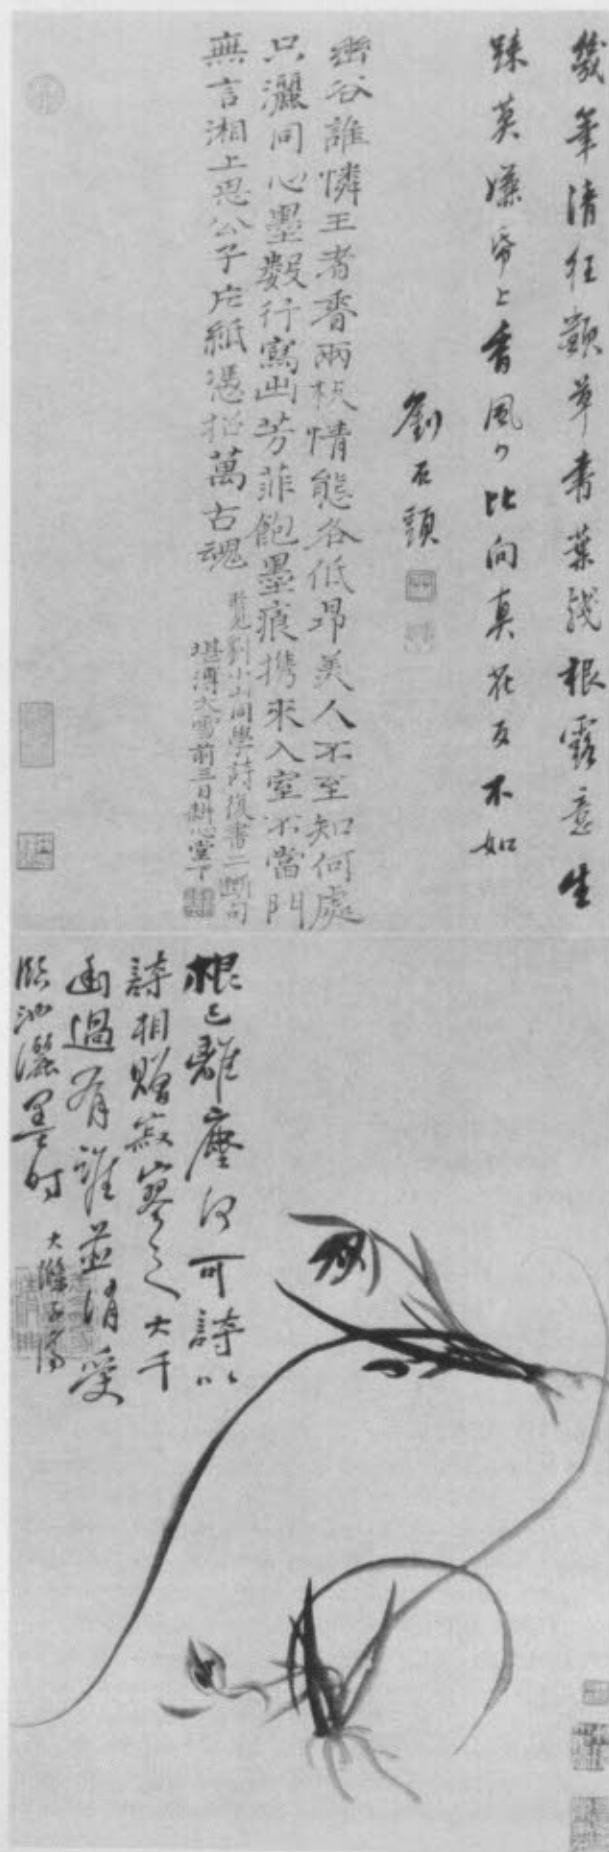 幾筆清狂顛草書葉殘根露意生
踈莫嫌帋上香風少比向真花反不如
劉石頭
幽谷誰憐王者香兩枝情態各低昂美人不至知何處
只灑同心墨數行寫出芳菲飽墨痕携來入室不當門
無言湘上思公子片紙憑招萬古魂
劉小山同學詩復書二斷句
堪溥大雪前三日耕心堂下
根已離塵何可詩以
詩相贈寂寥之大千
香過有誰並消受
臨池灑墨時
大滌子